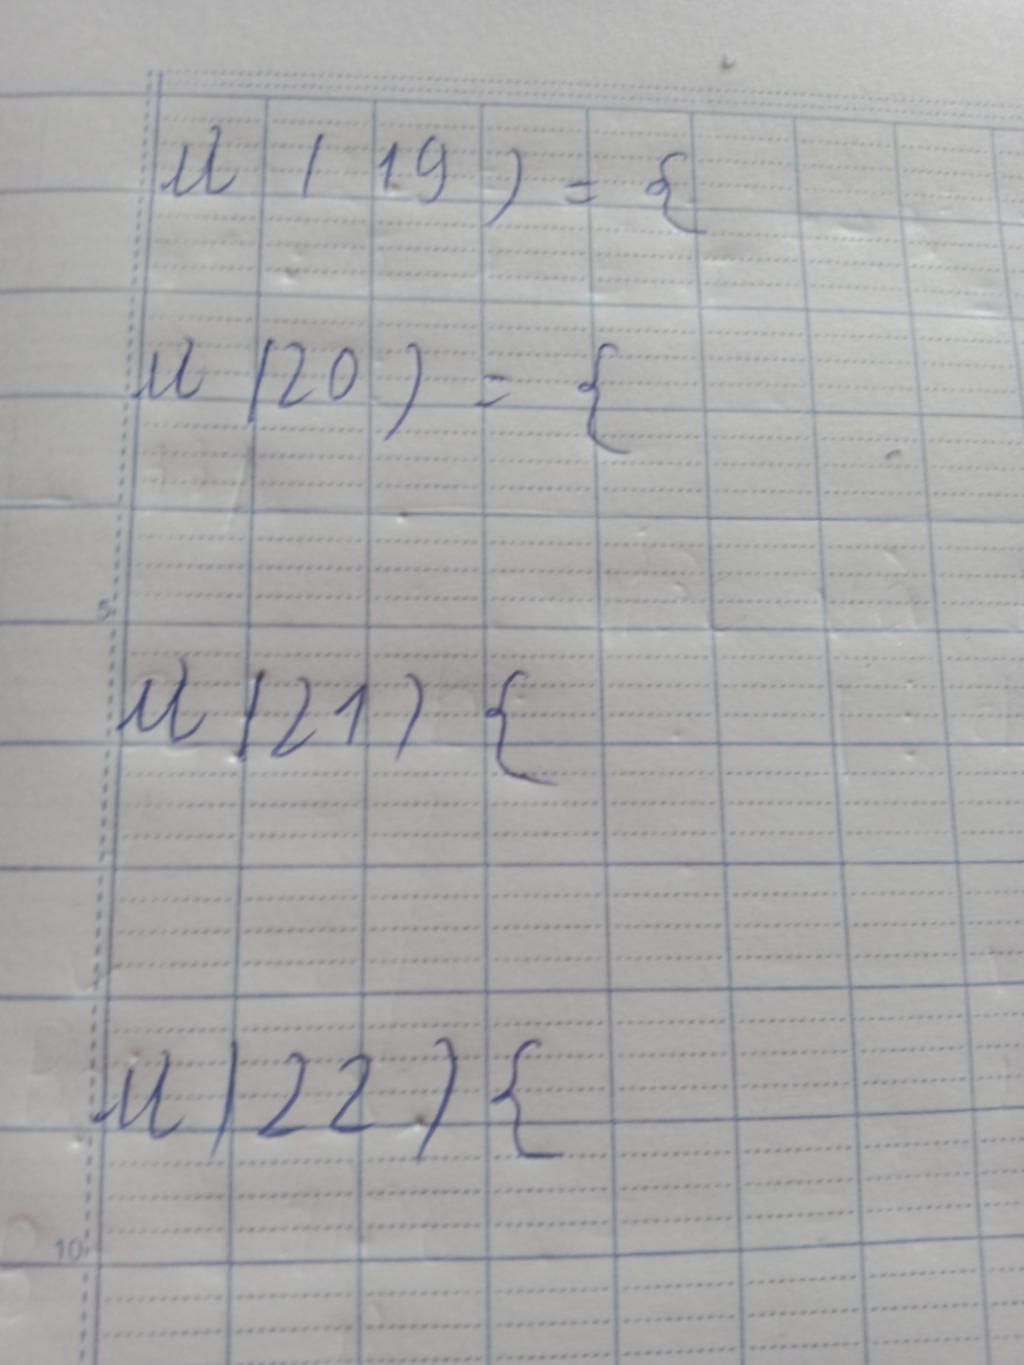 U ( 19 ) = {
U (20 ) = {
5
U (21 ) {
U (22 ) {
10